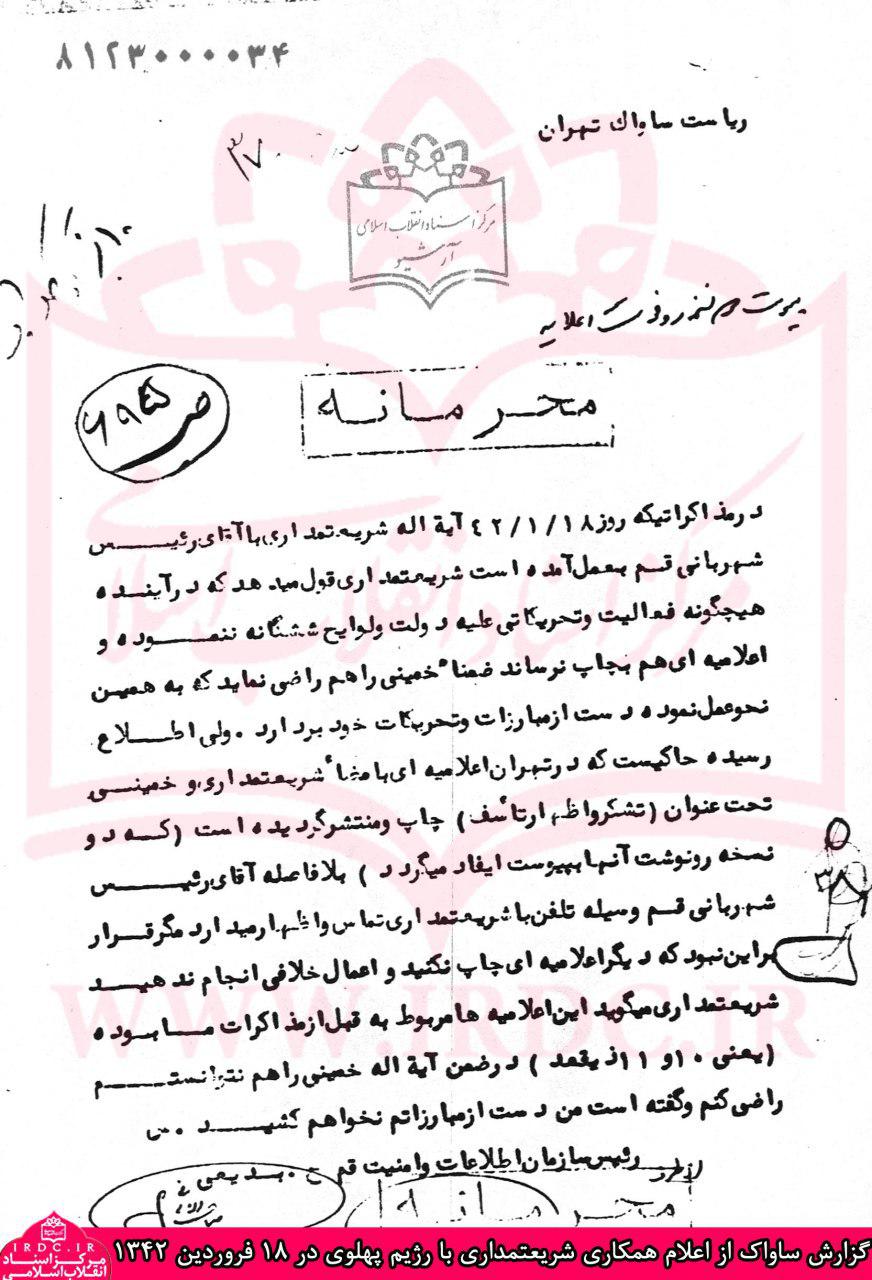 ۸۱۲۳۰۰۰۰۰۳۴
ریاست ساواک تهران
۳۷
مرکز اسناد انقلاب اسلامی
آرشیو
پیوست
اعلامیه
محرمانه
در مذاکراتیکه روز ۴۲/۱/۱۸ آیة اله شریعتمداری با آقای رئیس
شهربانی قم بعمل آمده است شریعتمداری قول میدهد که در آینده
هیچگونه فعالیت و تحریکاتی علیه دولت ولوایح ششگانه ننموده و
اعلامیه ای هم بچاپ نرساند ضمنا" خمینی را هم راضی نماید که به همین
نحو عمل نموده دست از مبارزات و تحریکات خود بردارد . ولی اطلاع
رسیده حاکیست که در تهران اعلامیه ای با مضاء شریعتمداری و خمینی
تحت عنوان ( تشکر و اظهار تاسف ) چاپ و منتشر گردیده است ( که دو
نسخه رونوشت آنها بپیوست ایفاد میگردد ) بلافاصله آقای رئیس
شهربانی قم وسیله تلفن با شریعتمداری تماس و اظهار میدارد مگر قرار
براین نبود که دیگر اعلامیه ای چاپ نکنید و اعمال خلافی انجام ندهید
شریعتمداری میگوید این اعلامیه ها مربوط به قبل از مذاکرات ما بوده
( یعنی ۱۰ و ۱۱ ذیقعد ) در ضمن آیة اله خمینی را هم نتوانستم
راضی کنم و گفته است من دست از مبارزاتم نخواهم کشید . س
رئیس سازمان اطلاعات و امنیت قم ح . بدیعی
محرمانه
WWW.IRDC.IR
IRDC.IR
مرکز اسناد
انقلاب اسلامی
گزارش ساواک از اعلام همکاری شریعتمداری با رژیم پهلوی در ۱۸ فروردین ۱۳۴۲